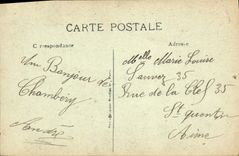 CARTE POSTALE
Correspondance
Adresse
Un Bonjour de
Chambéry
André
Melle Marie Louise
Sauvez 35
Rue de la Clef 35
St quentin
Aisne